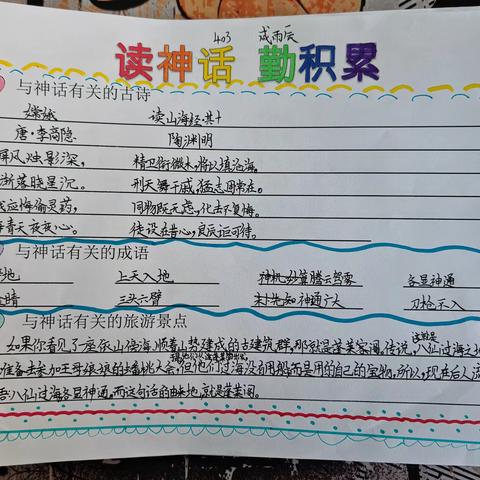 403 成雨辰
读神话 勤积累
与神话有关的古诗
嫦娥 读山海经·其十
唐·李商隐 陶渊明
屏风烛影深, 精卫衔微木,将以填沧海。
渐落晓星沉。 刑天舞干戚,猛志固常在。
应悔偷灵药, 同物既无虑,化去不复悔。
青天夜夜心。 徒设在昔心,良辰讵可待。
与神话有关的成语
地 上天入地 神机妙算 腾云驾雾 各显神通
暗 三头六臂 未卜先知 神通广大 刀枪不入
与神话有关的旅游景点
如果你看见了一座依山傍海,顺着山势建成的古建筑群,那就是蓬莱阁,传说,八仙过海之地
准备去参加王母娘娘的蟠桃大会,但他们过海没有用船而是用的自己的宝物,所以,现在后人流
八仙过海各显神通,而这句话的由来地,就是蓬莱阁。